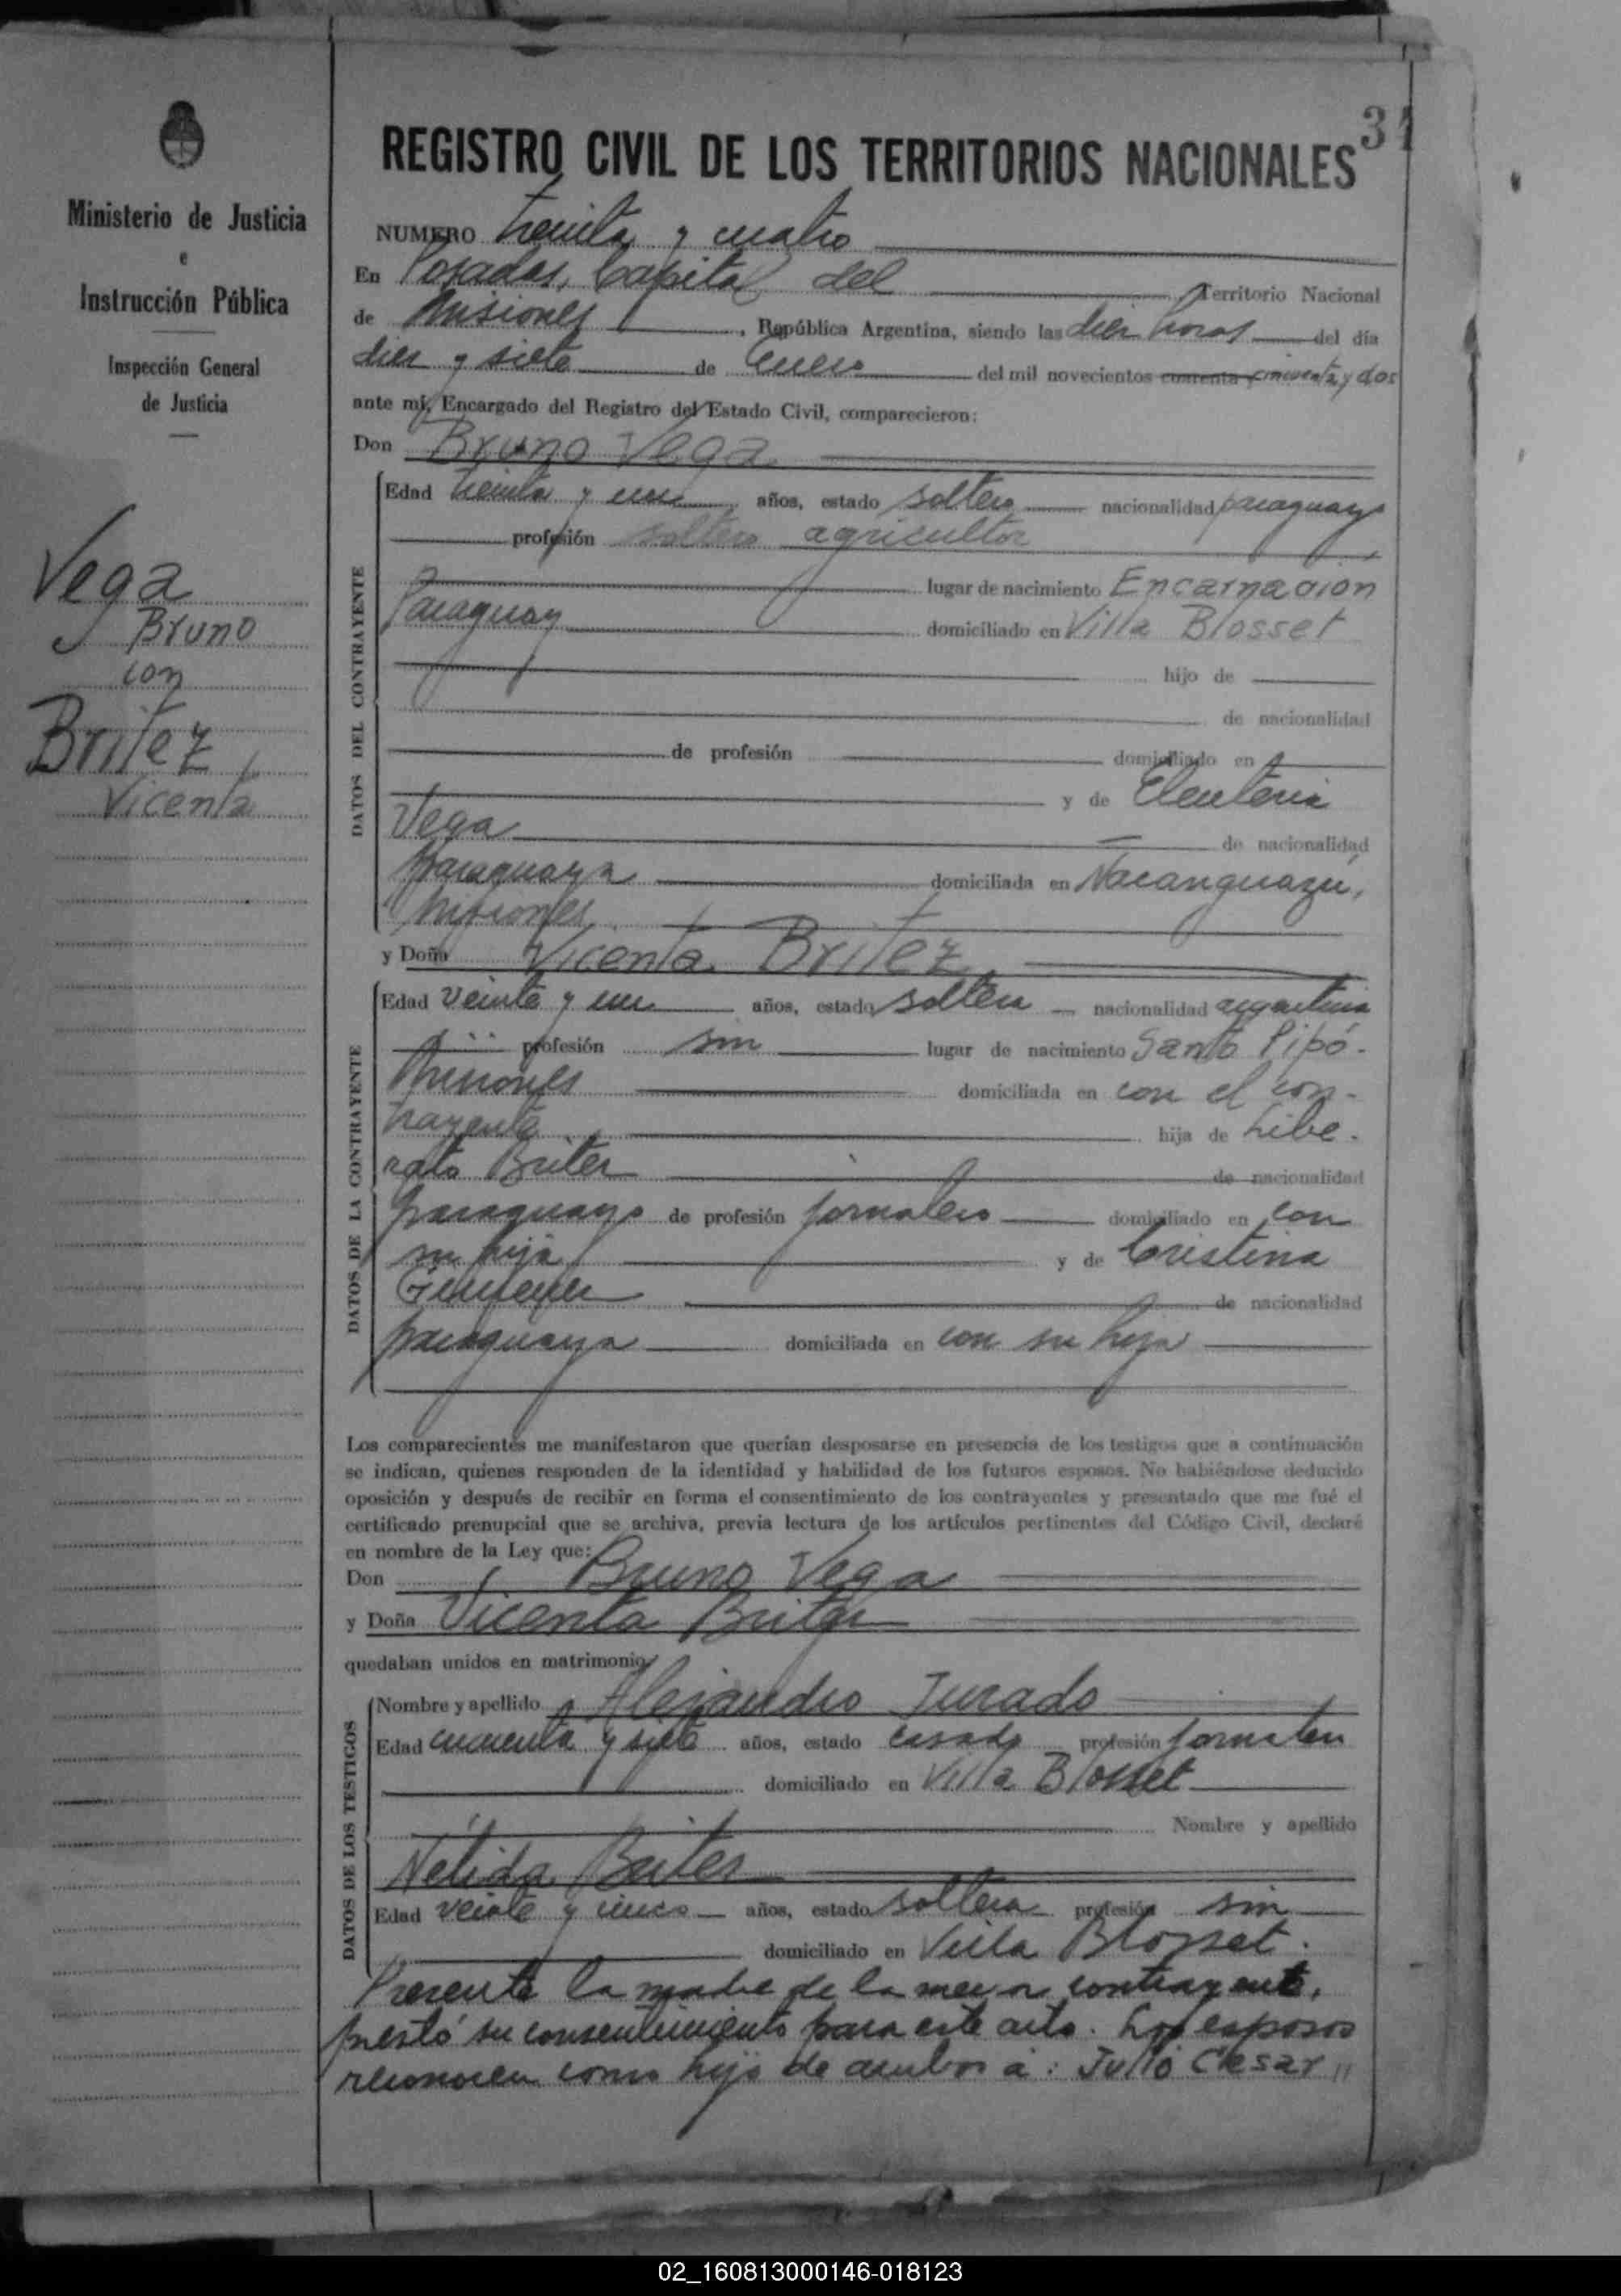 34
REGISTRO CIVIL DE LOS TERRITORIOS NACIONALES
Ministerio de Justicia
e
Instrucción Pública
Inspección General
de Justicia
Vega
Bruno
con
Britez
Vicenta
NUMERO treinta y cuatro
En Posadas, Capital del Territorio Nacional
de Misiones, República Argentina, siendo las diez horas del día
diez y siete de Enero del mil novecientos cuarenta cincuenta y dos
ante mí, Encargado del Registro del Estado Civil, comparecieron:
Don Bruno Vega
DATOS DEL CONTRAYENTE
Edad treinta y un años, estado soltero nacionalidad paraguayo
profesión soltero agricultor
lugar de nacimiento Encarnacion
Paraguay domiciliado en Villa Blosset
hijo de
de nacionalidad
de profesión domiciliado en
y de Eleuteria
Vega de nacionalidad
paraguaya domiciliada en Ñacanguazú,
Misiones
y Doña Vicenta Britez
DATOS DE LA CONTRAYENTE
Edad veinte y un años, estado soltera nacionalidad argentina
profesión sin lugar de nacimiento Santo Pipó-
Misiones domiciliada en con el con-
trayente hija de Libe-
rato Britez de nacionalidad
paraguayo de profesión jornalero domiciliado en con
su hija y de Cristina
de nacionalidad
paraguaya domiciliada en con su hija
Los comparecientes me manifestaron que querían desposarse en presencia de los testigos que a continuación
se indican, quienes responden de la identidad y habilidad de los futuros esposos. No habiéndose deducido
oposición y después de recibir en forma el consentimiento de los contrayentes y presentado que me fué el
certificado prenupcial que se archiva, previa lectura de los artículos pertinentes del Código Civil, declaré
en nombre de la Ley que:
Don Bruno Vega
y Doña Vicenta Britez
quedaban unidos en matrimonio
DATOS DE LOS TESTIGOS
Nombre y apellido Alejandro Jurado
Edad y siete años, estado casado profesión jornalero
domiciliado en Villa Blosset
Nombre y apellido
Nélida Britez
Edad veinte y cinco años, estado soltera profesión sin
domiciliado en Villa Blosset.
Presente la madre de la menor contrayente,
prestó su consentimiento para este acto. Los esposos
reconocen como hijo de ambos a: Julio Cesar "
02_160813000146-018123